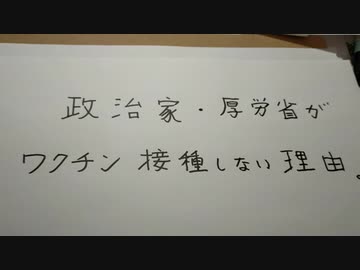 政治家・厚労省が
ワクチン接種しない理由。